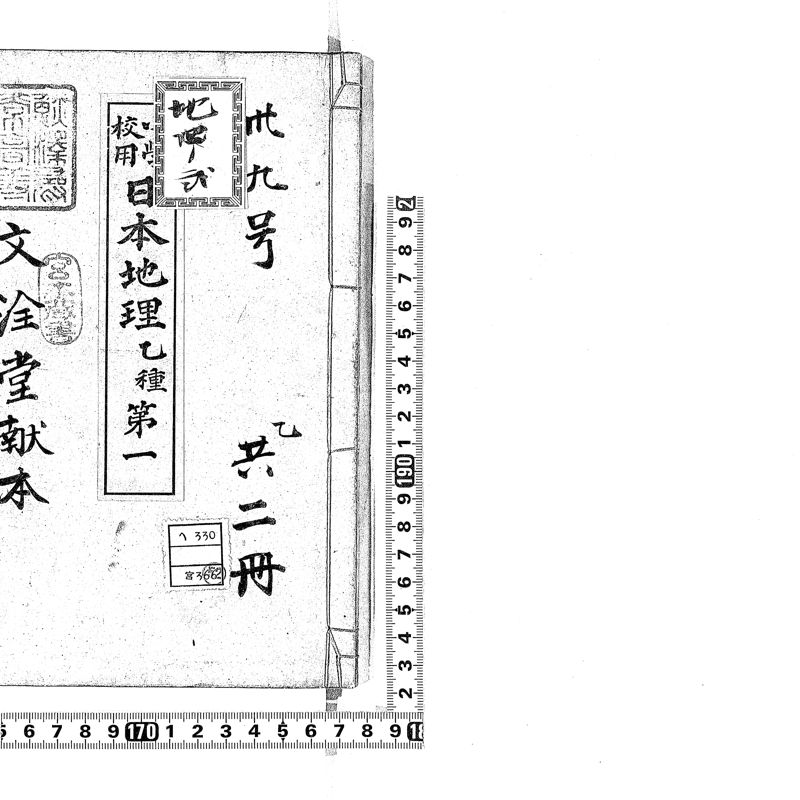 卅九号
乙
共二冊
地
校用
日本地理乙種第一
ヘ 330
宮 3662
文淦堂献本
2 9 8 7 6 5 4 3 2 1 190 9 8 7 6 5 4 3 2
5 6 7 8 9 170 1 2 3 4 5 6 7 8 9 18